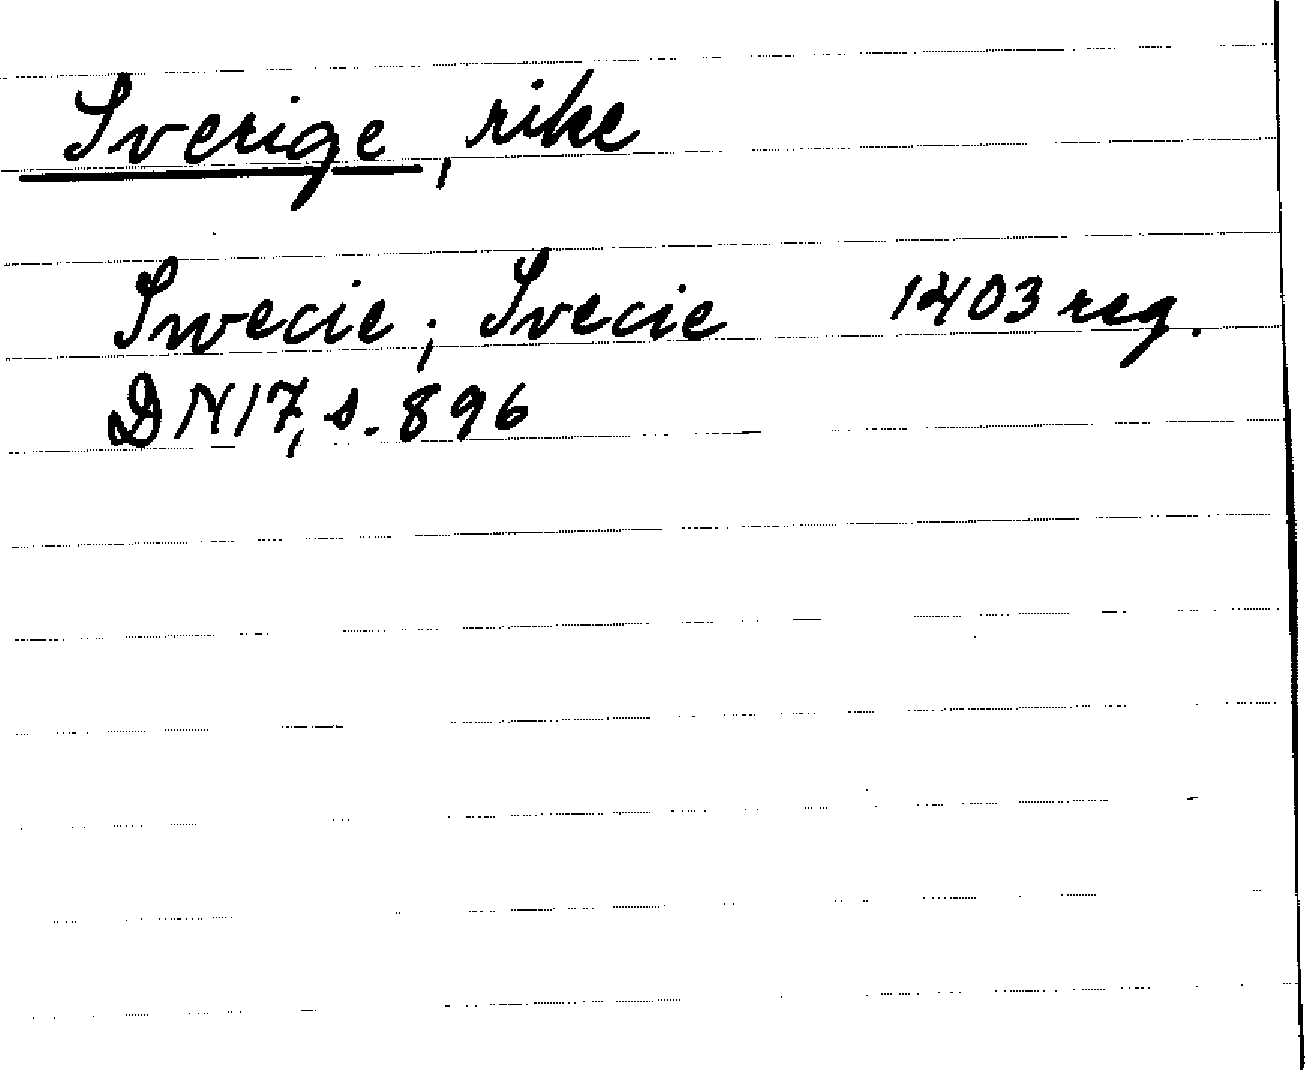 Sverige, rike
Swecie; Svecie 1403 reg.
DN17, s. 896